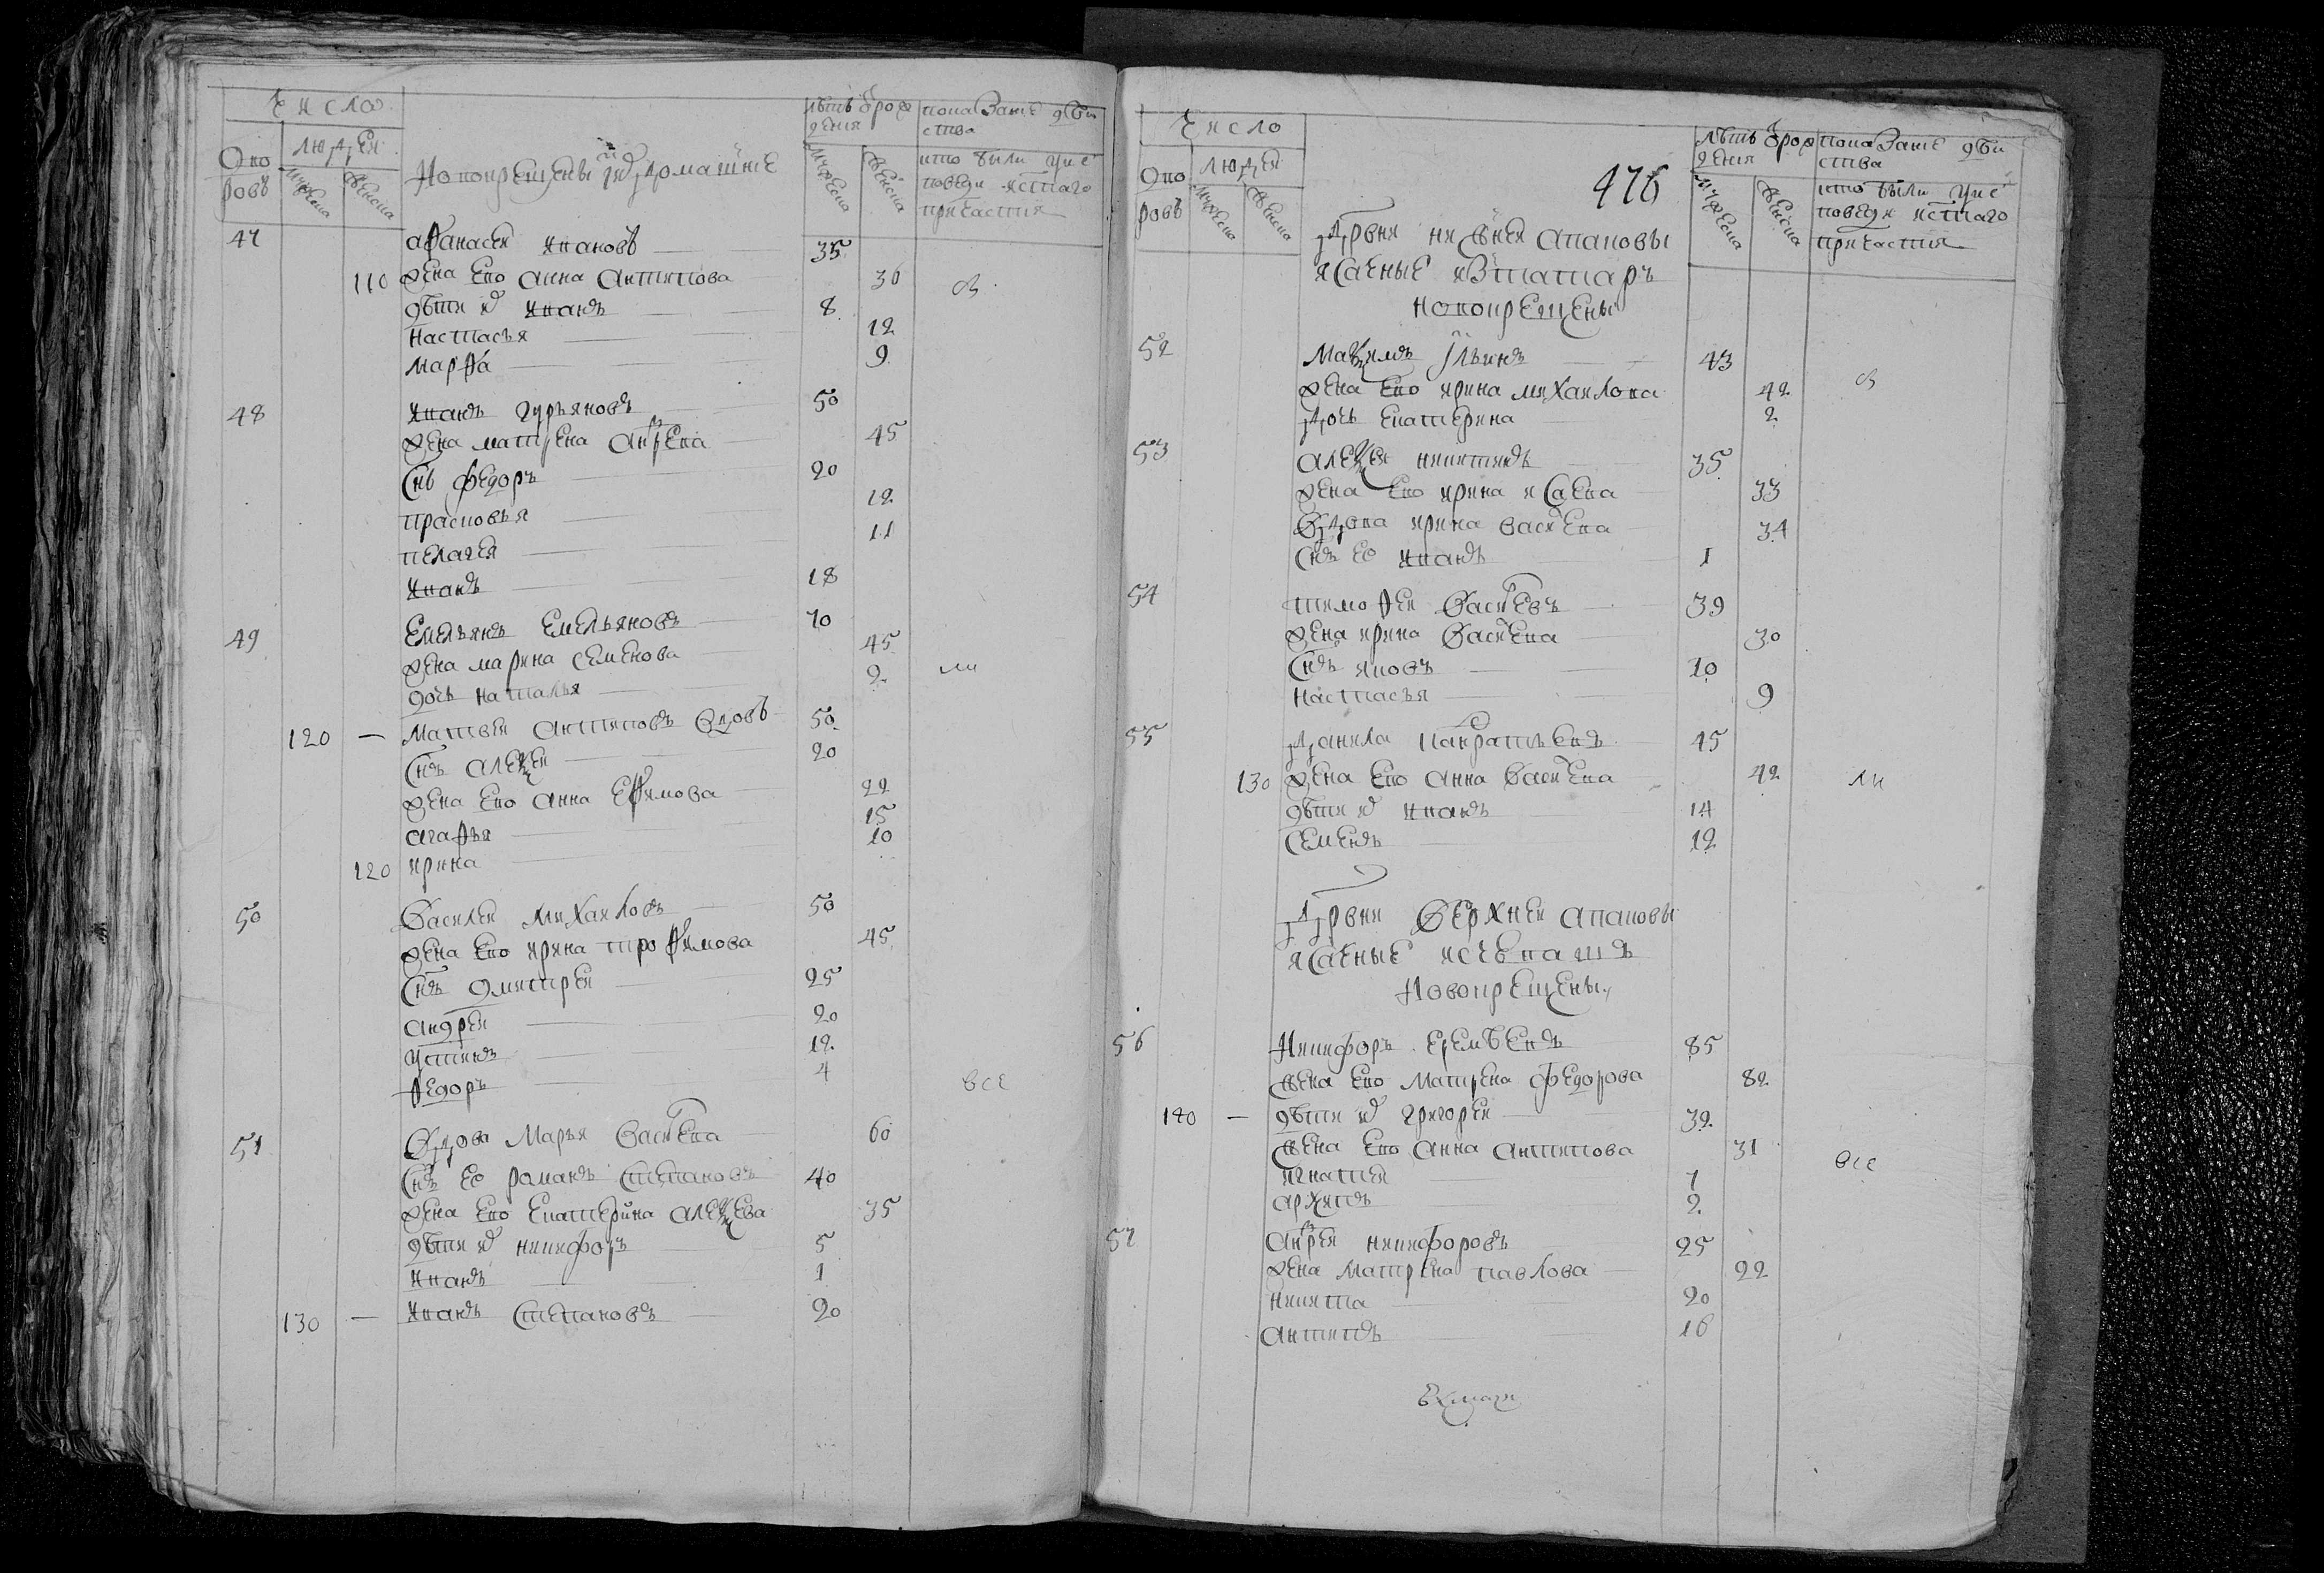 Число
Дво
ровъ
людеи
мужеска
женска
Новокрещены и их домашние
лѣтъ от рож
дения
мужеска
женска
показание дѣи
ства
кто были у испо
поведи и стаго
причастия
47 Афанасеи Иванов 35
110 жена ево Анна Антипова 36
дѣти их Иванъ 8
Настасья 12
Марфа 9
48 Иванъ Гурьяновъ 50
жена Матрена Андреева 45
Снъ Федоръ 20
Прасковья 12
Пелагея 11
Иванъ 18
49 Емельянъ Емельяновъ 70
жена Марина Семенова 45
дочь Наталья 2
120 — Матвеи Антиповъ вдовъ 50
Снъ Алексеи 20
жена ево Анна Ефимова 22
Агафья 15
120 Ирина 10
50 Василеи Михаиловъ 50
жена ево Ирина Трофимова 45
Снъ Дмитреи 25
Андреи 20
Устинъ 12
Федоръ 4 все
51 Вдова Марья Васильева 60
Снъ ее Романъ Степановъ 40
жена ево Екатерина Алексеева 35
дѣти их Никифоръ 5
Иванъ 1
130 — Иванъ Степановъ 20
Число
Дво
ровъ
людеи
мужеска
женска
476
лѣтъ от рож
дения
мужеска
женска
показание дѣи
ства
кто были у испо
поведи и стаго
причастия
Дрвни нижнеи Апаковы
ясачные из татаръ
новокрещены
52 Максимъ Ильинъ 43
жена ево Ирина Михаилова 42
Дочь Екатерина 2
53 Алексеи Никитинъ 35
жена ево Ирина Исаева 33
Вдова Ирина Васильева 34
Снъ ее Иванъ 1
54 Тимофеи Васильевъ 39
жена Ирина Васильева 30
Снъ Яковъ 10
Настасья 9
55 Данила Панкратьевъ 45
130 жена ево Анна Васильева 42
дѣти их Иванъ 14
Семенъ 12
Дрвни Верхнеи Апаковы
ясачные ис чювашъ
Новокрещены
56 Никифоръ Еремѣевъ 85
жена ево Матрена Федорова 82
140 — дѣти их Григореи 39
жена ево Анна Антипова 31 все
Игнатеи 7
Архипъ 2
57 Андреи Никифоровъ 25
жена Матрена Павлова 22
Никита 20
Антипъ 16